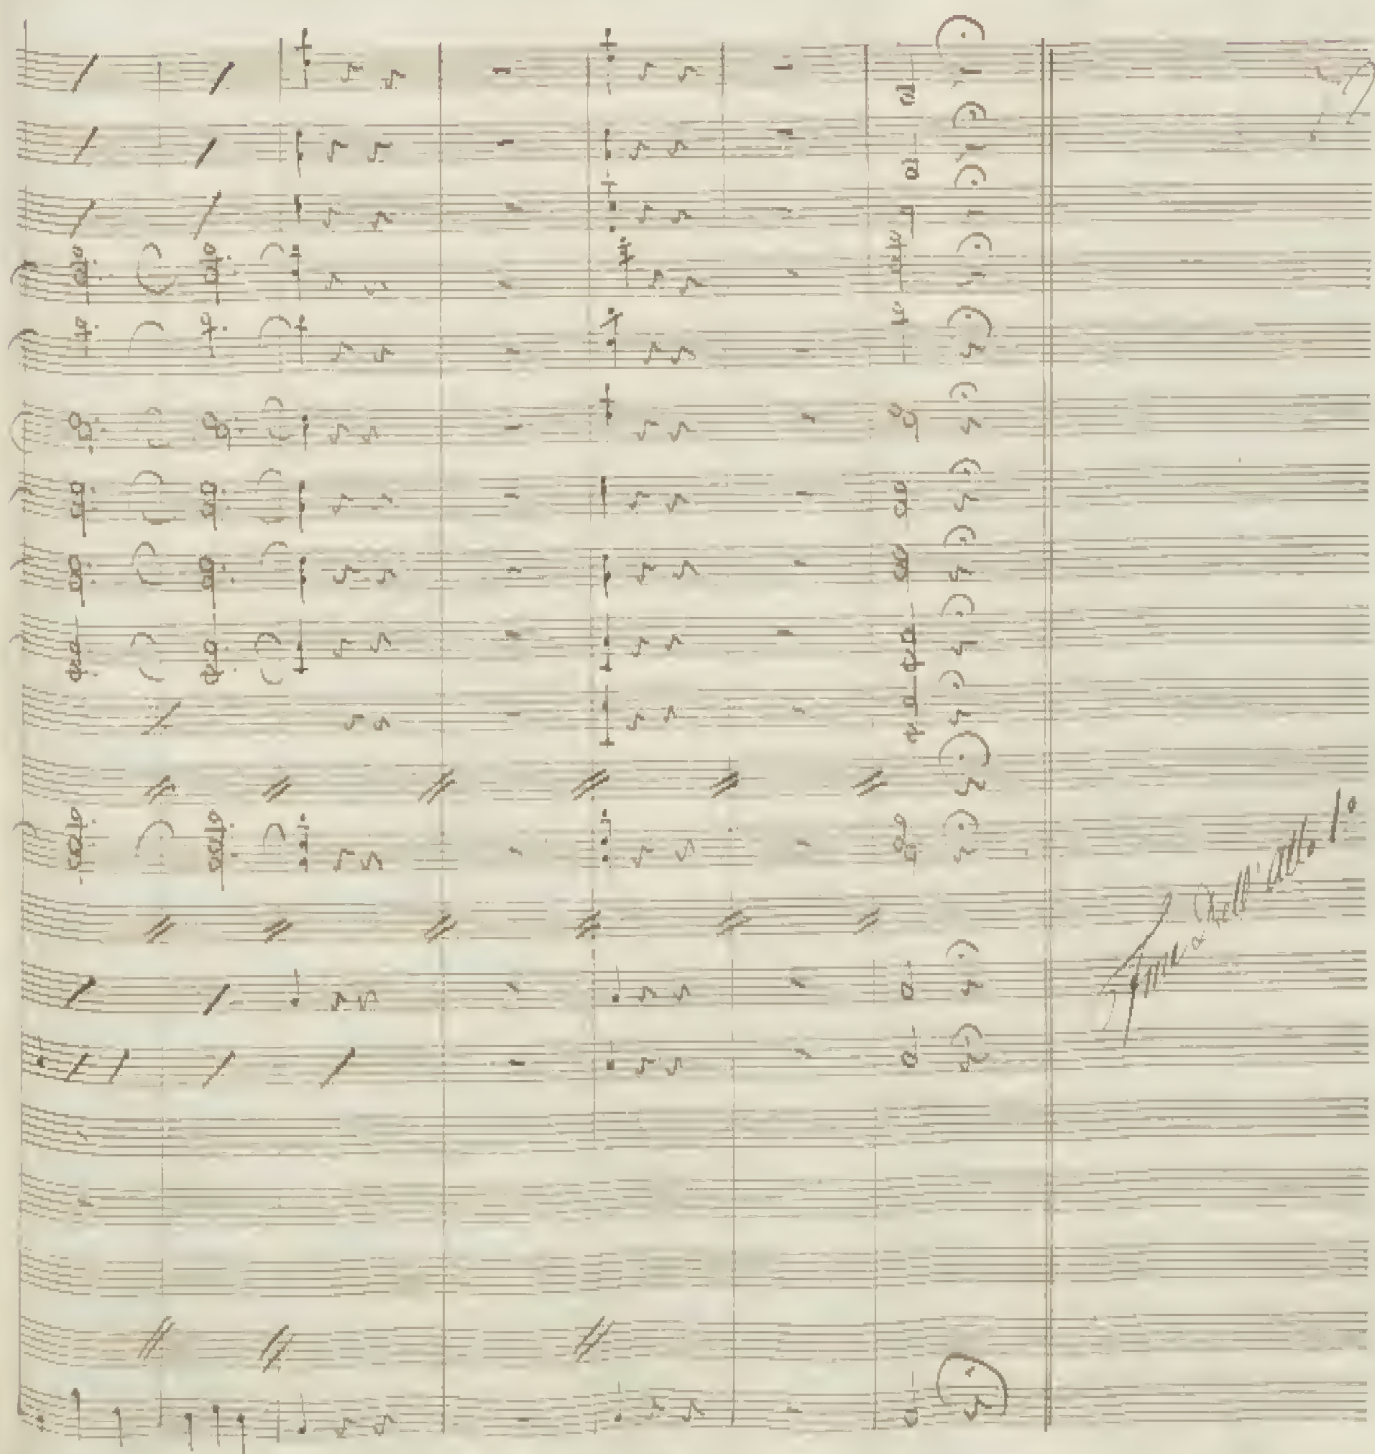 Fine dell'atto 1º